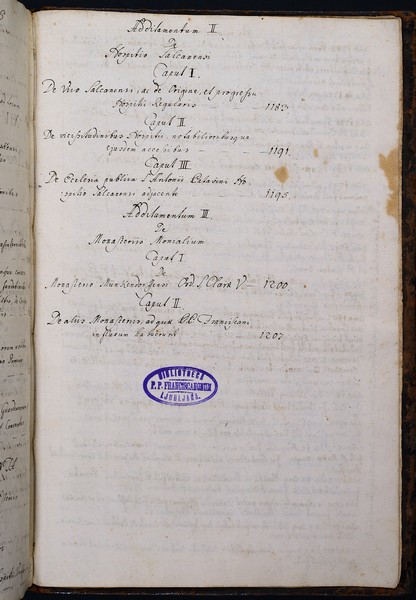 Additamentum II
De
Hospitio Salcanensi
Caput I.
De Vico Salcanensi, ac de Origine, et progressu
Hospitii Regularis — 1183
Caput II
De vicissitudinibus Hospitii, notabilioribusque
ejusdem accessibus — 1191
Caput III
De Ecclesia publica S. Antonii Patavini Ho-
spitio Salcanensi adjacente — 1195
Additamentum III.
De
Monasteriis Monialium
Caput I
De
Monasterio Munkendorfensi Ord. S. Claræ V. — 1200
Caput II.
De aliis Monasteriis, ad quæ PP. Franciscani
influxum habuerunt — 1207
BIBLIOTHECA
P. P. FRANCISCANORUM
LJUBLJANA.